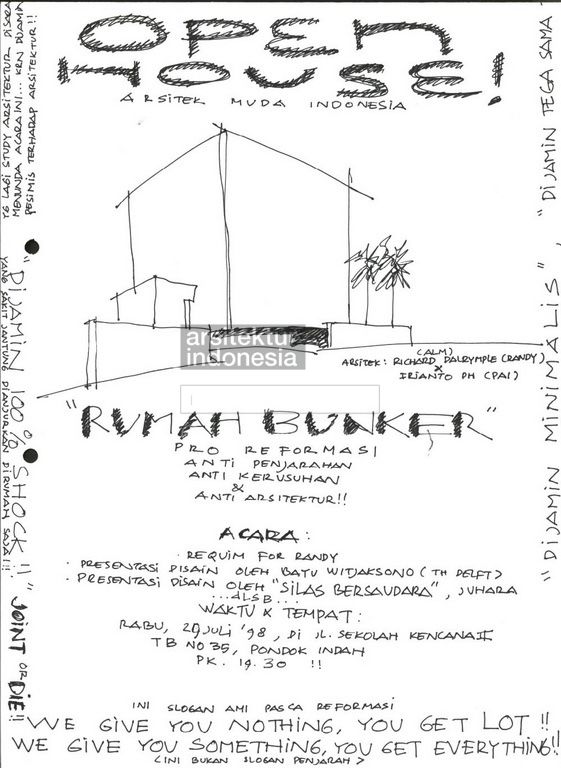 OPEN
HOUSE!
ARSITEK MUDA INDONESIA
MENUNDA ACARA INI... KRN DIJAMIN
PESIMIS TERHADAP ARSITEKTUR!!
"DIJAMIN 100% SHOCK!!"
YANG SAKIT JANTUNG DIANJURKAN DI RUMAH SAJA!!!
JOINT OR DIE!!
"DIJAMIN MINIMALIS", "DIJAMIN TEGA SAMA
arsitektur
indonesia
(ALM)
ARSITEK: RICHARD DALRYMPLE (RANDY)
X
IRIANTO PH (PAI)
"RUMAH BUNKER"
PRO REFORMASI
ANTI PENJARAHAN
ANTI KERUSUHAN
&
ANTI ARSITEKTUR!!
ACARA:
· REQUIM FOR RANDY
· PRESENTASI DISAIN OLEH BAYU WITJAKSONO (TH DELFT)
· PRESENTASI DISAIN OLEH "SILAS BERSAUDARA", JUHARA
...dLSB...
WAKTU & TEMPAT:
RABU, JULI '98, DI JL. SEKOLAH KENCANA II
TB NO 35, PONDOK INDAH
PK. 19.30 !!
INI SLOGAN AMI PASCA REFORMASI
WE GIVE YOU NOTHING, YOU GET LOT!!
WE GIVE YOU SOMETHING, YOU GET EVERYTHING!!
(INI BUKAN SLOGAN PENJARAH)